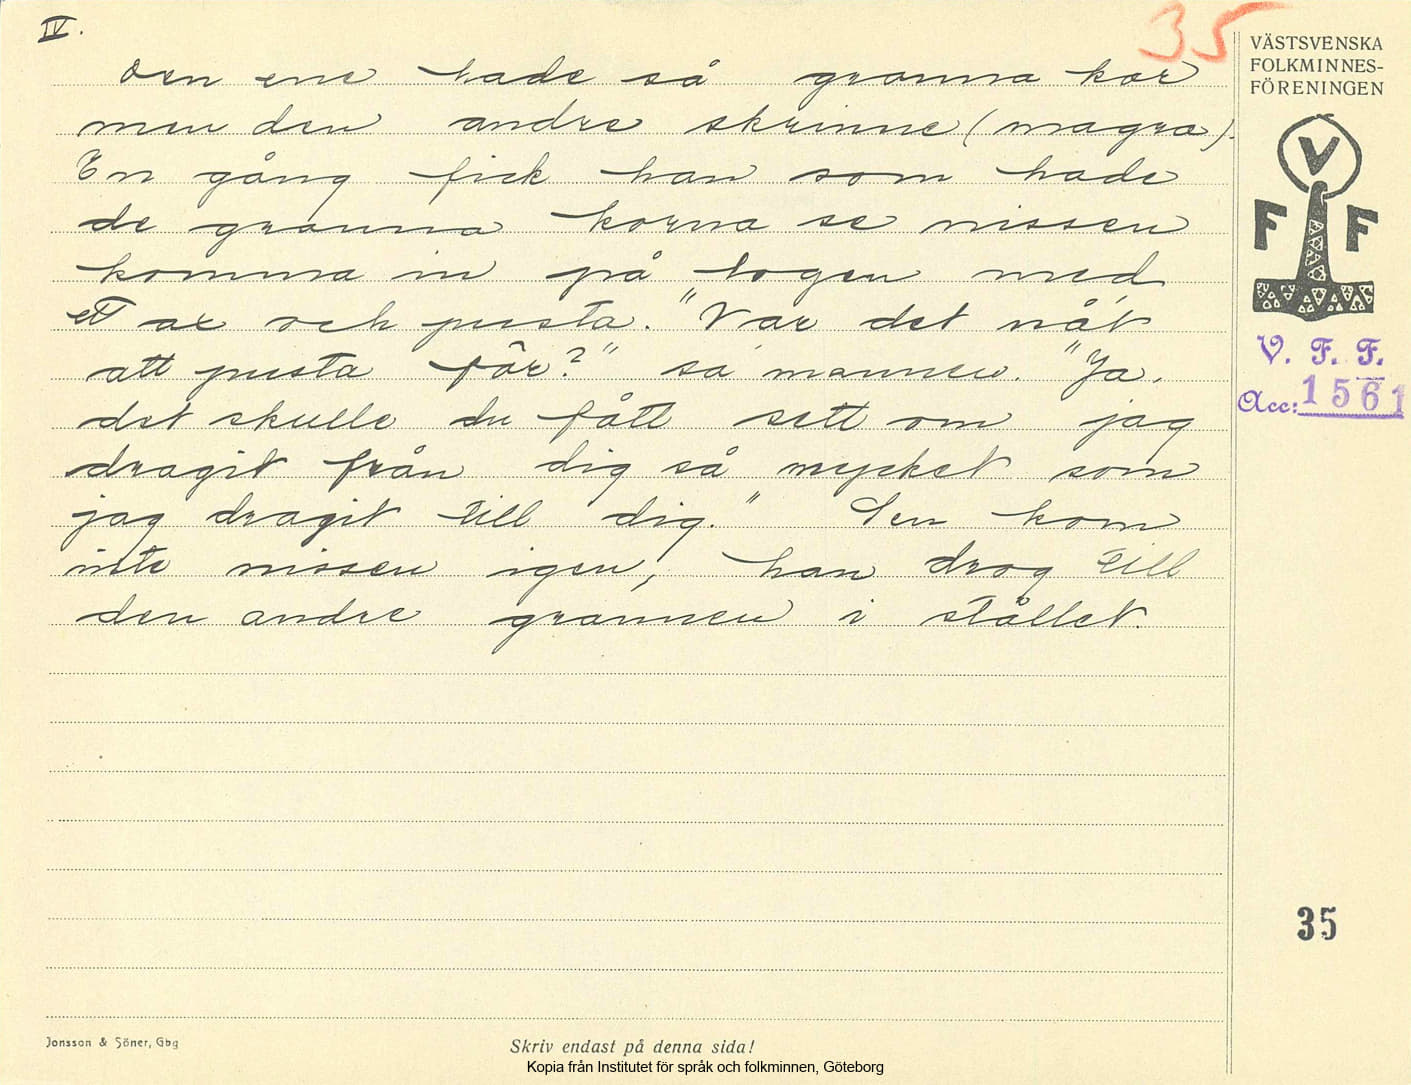 IV.
35
den ene hade så granna kor
men den andre skrinne (magra).
En gång fick han som hade
de granna korna se nissen
komma in på logen med
ett ax och pusta. "Var det nåt
att pusta för?" sa mannen. "Ja,
det skulle du fått sett om jag
dragit från dig så mycket som
jag dragit till dig." Sen kom
inte nissen igen, han drog till
den andre grannen i stället.
VÄSTSVENSKA
FOLKMINNES-
FÖRENINGEN
V
F F
V. F. F.
Acc: 1561
35
Jonsson & Söner, Gbg
Skriv endast på denna sida!
Kopia från Institutet för språk och folkminnen, Göteborg